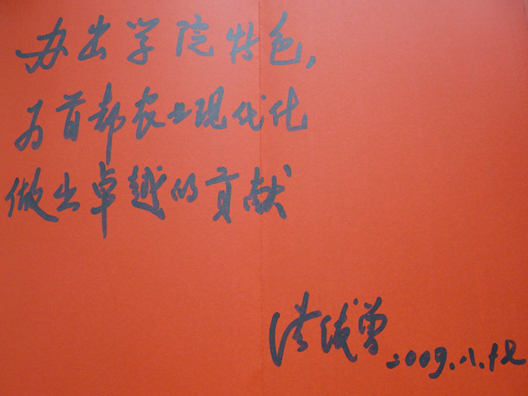 办出学院特色,
为首都农业现代化
做出卓越的贡献
洪绂曾
2009.11.12